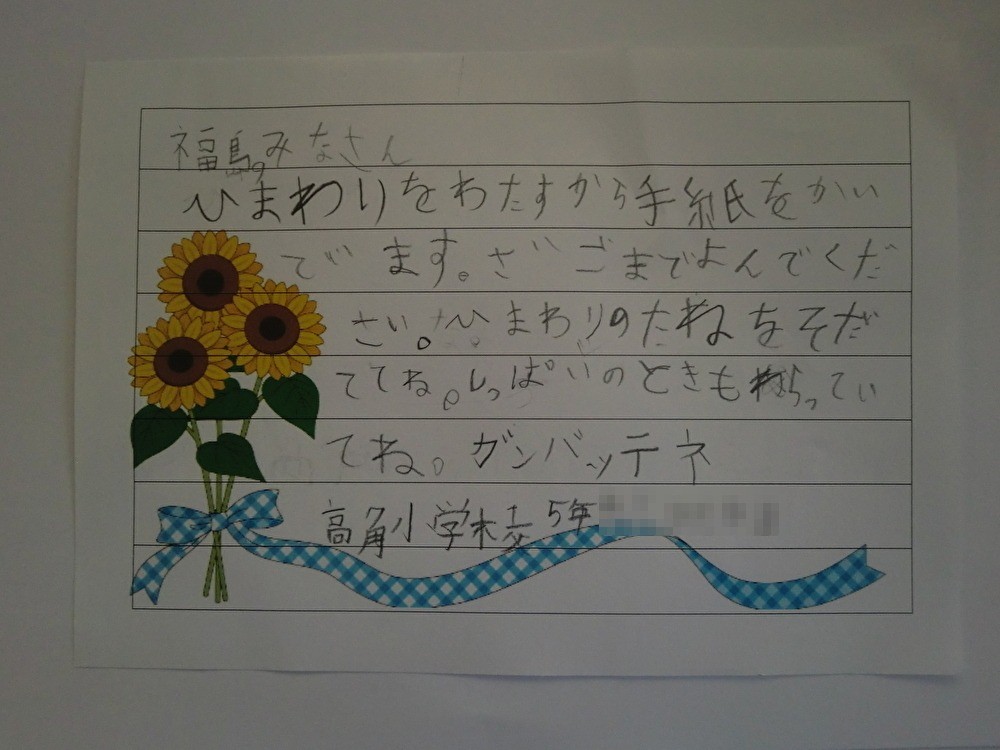 福島のみなさん
ひまわりをわたすから手紙をかい
でます。さいごまでよんでくだ
さい。ひまわりのたねをそだ
ててね。しっぱいのときも わらってい
てね。ガンバッテネ
高角小学校5年